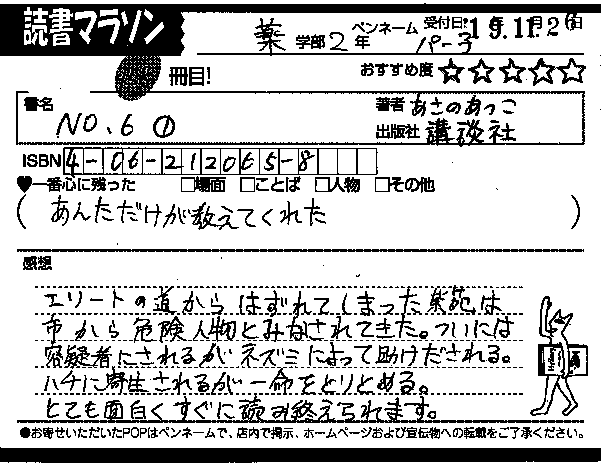 読書マラソン
薬 学部 2 年 ペンネーム パー子 受付日:19.11.26日
冊目!
おすすめ度 ☆☆☆☆☆
書名 NO.6 ①
著者 あさのあつこ
出版社 講談社
ISBN 4-06-212065-8
♥一番心に残った □場面 □ことば □人物 □その他
(あんただけが教えてくれた)
感想
エリートの道からはずれてしまった紫苑は
市から危険人物とみなされてきた。ついには
容疑者にされるがネズミによって助けだされる。
ハチに寄生されるが一命をとりとめる。
とても面白くすぐに読み終えられます。
●お寄せいただいたPOPはペンネームで、店内で掲示、ホームページおよび宣伝物への転載をご了承ください。